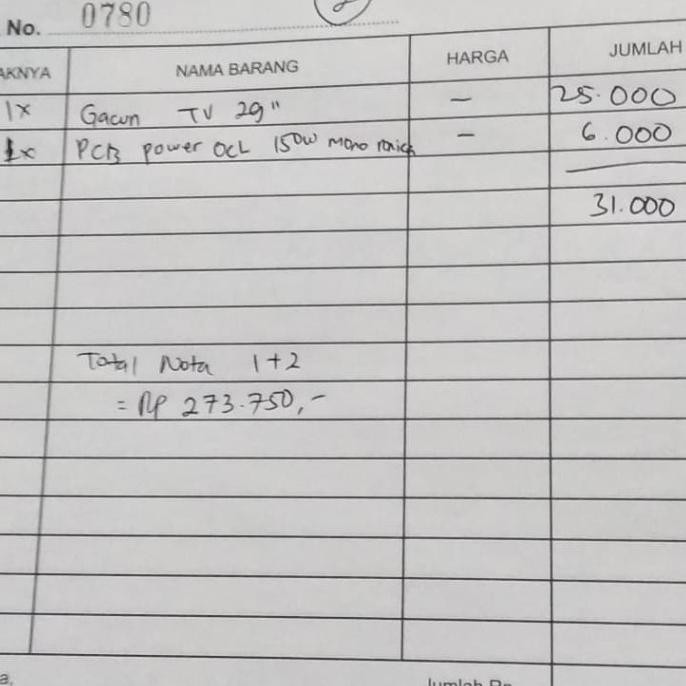 No. 0780
AKNYA NAMA BARANG HARGA JUMLAH
1x Gacun TV 29" - 25.000
1x PCB power OCL 150W mono - 6.000
31.000
Total Nota 1+2
= Rp 273.750,-
a.
Jumlah Rp